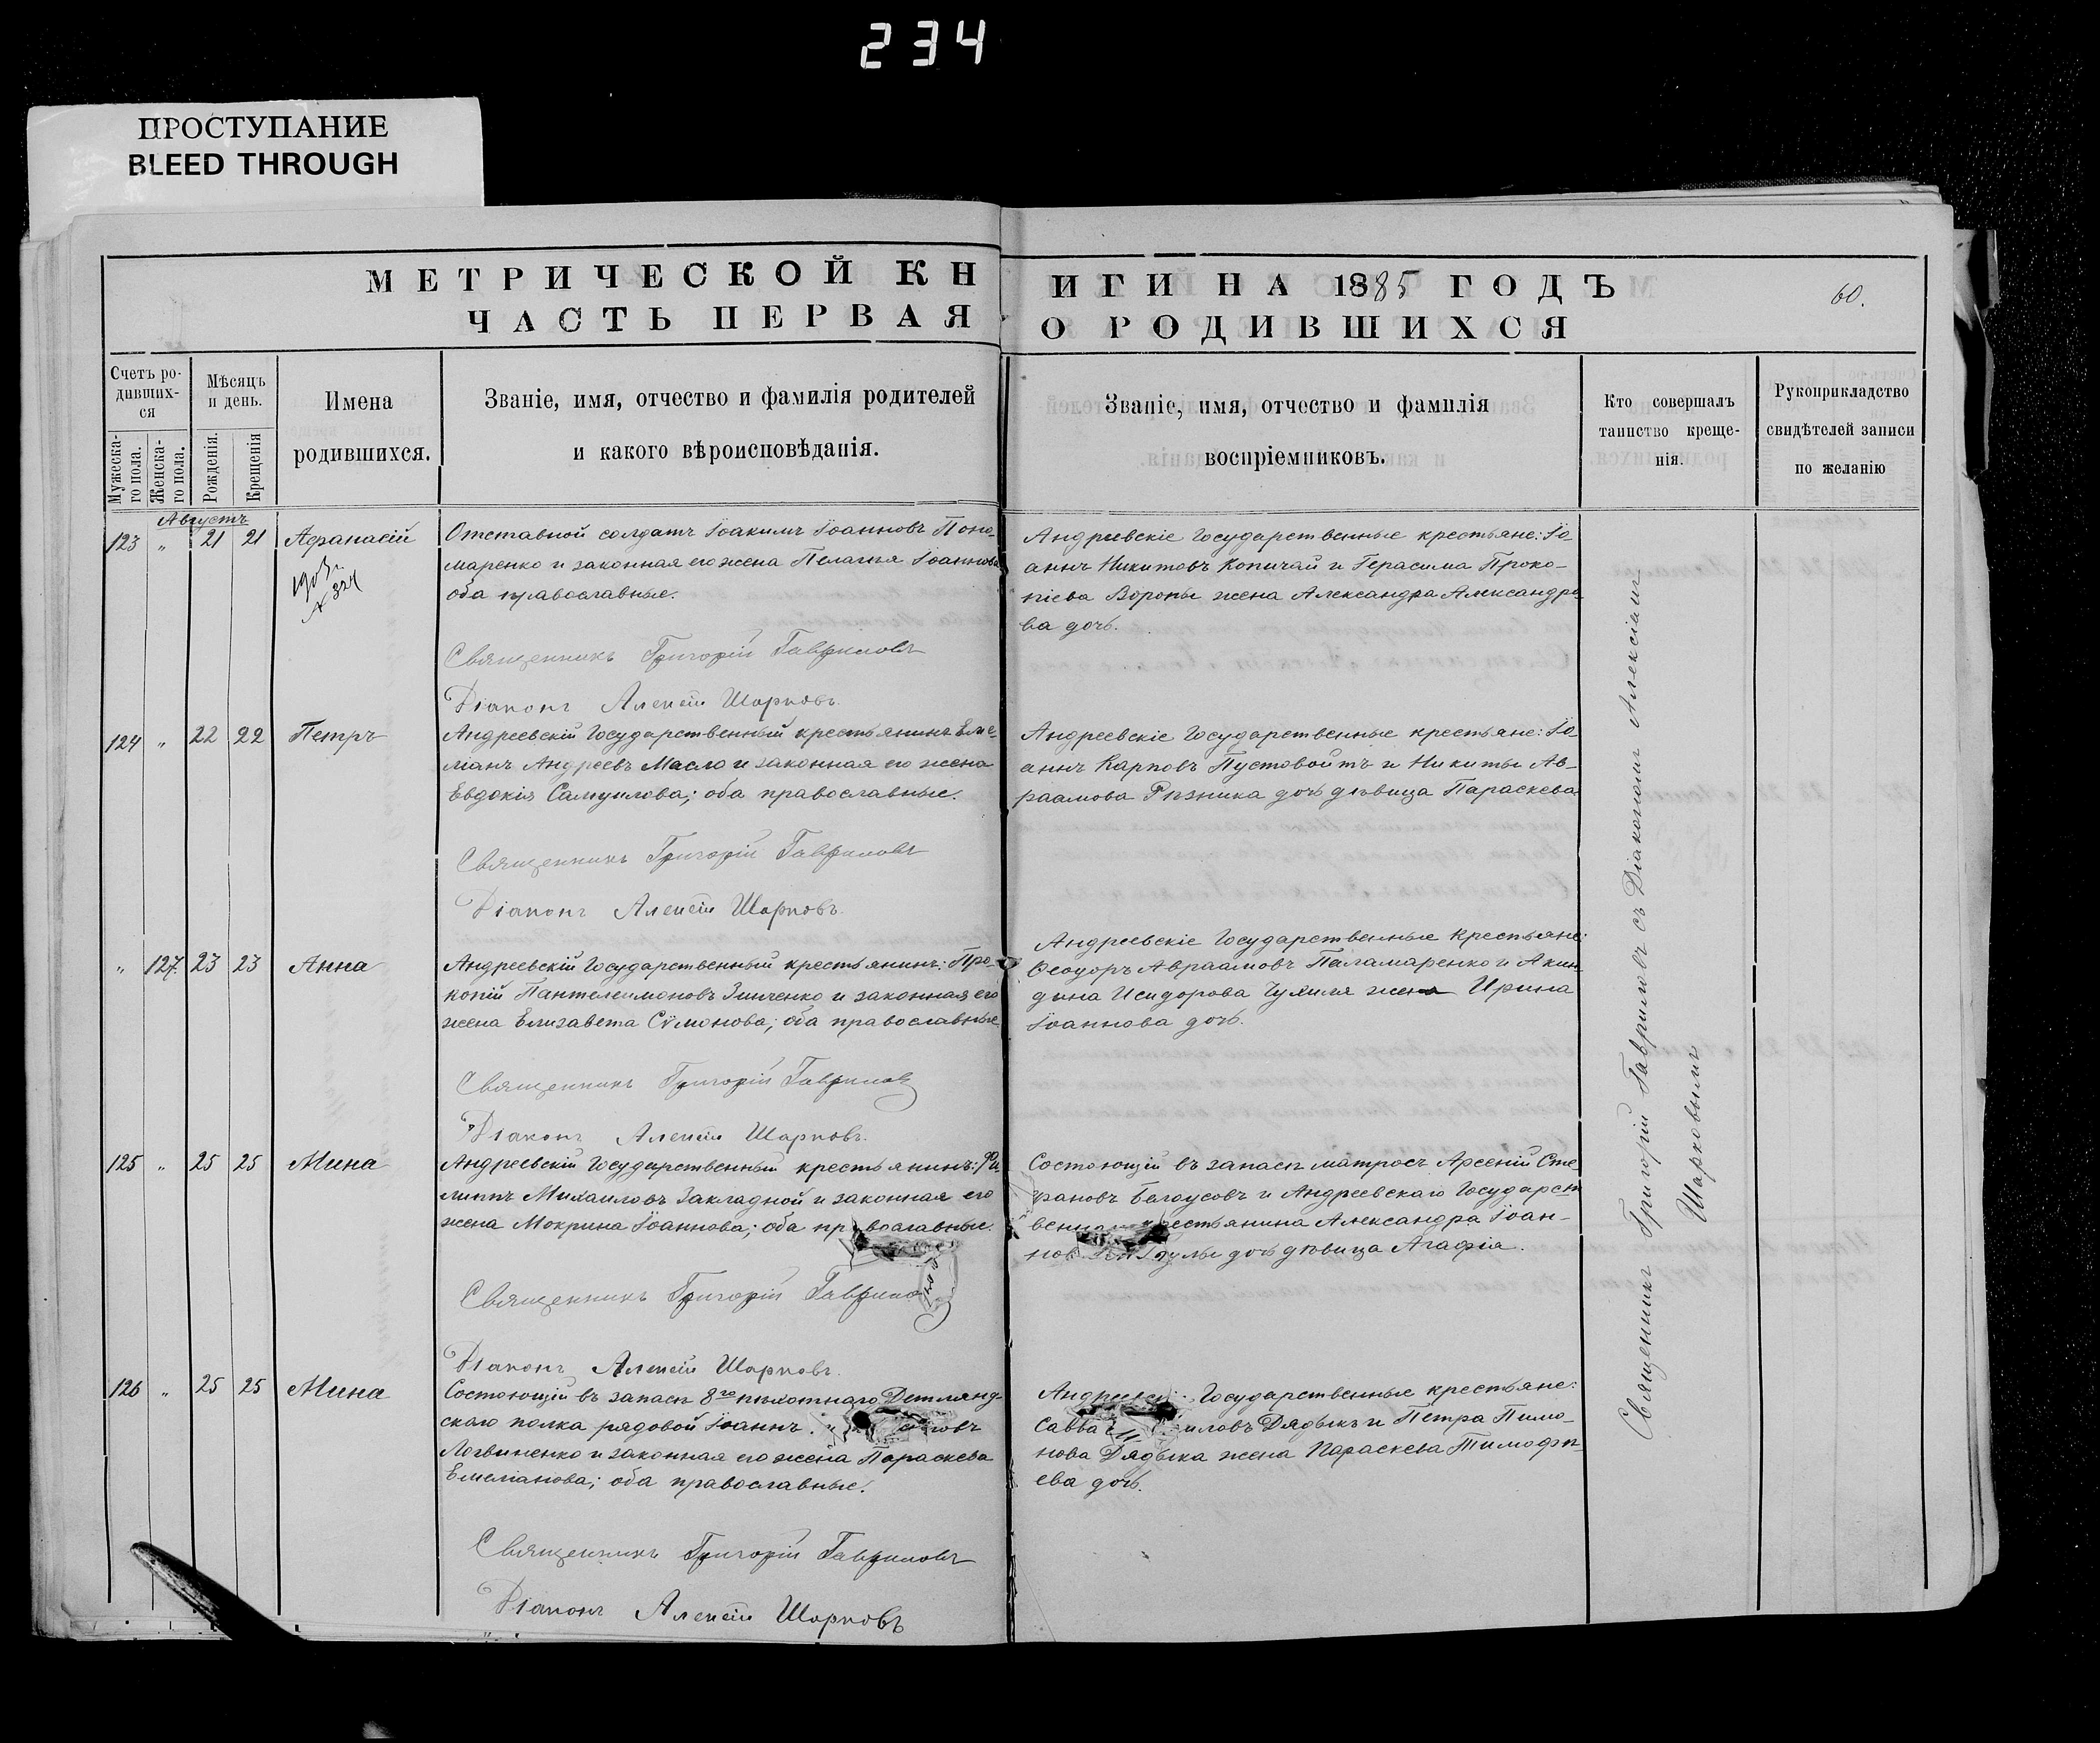 234
ПРОСТУПАНИЕ
BLEED THROUGH
МЕТРИЧЕСКОЙ КНИГИ НА 1885 ГОДЪ
60.
ЧАСТЬ ПЕРВАЯ О РОДИВШИХСЯ
Счетъ ро-
дивших-
ся
Мужеска-
го пола.
Женска-
го пола.
Мѣсяцъ
и день.
Рожденія.
Крещенія
Имена
родившихся.
Званіе, имя, отчество и фамилія родителей
и какого вѣроисповѣданія.
Званіе, имя, отчество и фамилія
воспріемниковъ.
Кто совершалъ
таинство креще-
нія.
Рукоприкладство
свидѣтелей записи
по желанію
Августъ
123 " 21 21 Афанасій
1903 г.
№ 324
Отставной солдатъ Іоакимъ Іоанновъ Поно-
маренко и законная его жена Пелагья Іоаннова
оба православные.
Священникъ Григорій Гавриловъ
Діаконъ Алексѣй Шарковъ.
Андреевскіе Государственные крестьяне: Іо-
аннъ Никитовъ Копичай и Герасима Проко-
піева Вороны жена Александра Александро
ва дочь.
124 " 22 22 Петръ
Андреевскій Государственный крестьянинъ Еме-
ліанъ Андреевъ Масло и законная его жена
Евдокія Самуилова; оба православные.
Священникъ Григорій Гавриловъ
Діаконъ Алексѣй Шарковъ.
Андреевскіе Государственные крестьяне: Іо-
аннъ Карповъ Пустовойтъ и Никиты Ав-
раамова Рѣзника дочь дѣвица Параскева
" 127. 23 23 Анна
Андреевскій Государственный крестьянинъ: Про-
копій Пантелеимоновъ Зинченко и законная его
жена Елизавета Сѵмонова; оба православные
Священникъ Григорій Гавриловъ
Діаконъ Алексѣй Шарковъ.
Андреевскіе Государственные крестьяне:
Ѳеодоръ Авраамовъ Паламаренко и Акин-
дина Исидорова жена Ирина
Іоаннова дочь.
125 " 25 25 Мина
Андреевскій Государственный крестьянинъ: Фи-
липпъ Михаиловъ Закладной и законная его
жена Мокрина Іоаннова; оба православные.
Священникъ Григорій Гаврило
Діаконъ Алексѣй Шарковъ.
Состоющій въ запасѣ матросъ Арсеній Сте-
фановъ Белоусовъ и Андреевскаго Государст
венн крестьянина Александра Іоан-
нов дочь дѣвица Агафія.
126 " 25 25 Мина
Состоющій въ запасѣ 8го пѣхотнаго Эстлянд-
скаго полка рядовой Іоаннъ новъ
Логвиненко и законная его жена Параскева
Емеліанова; оба православные.
Священникъ Григорій Гавриловъ
Діаконъ Алексѣй Шарковъ
Андреевск Государственные крестьяне:
Савва иловъ Дядыкъ и Петра Пимо-
нова Дядыка жена Параскева Тимофѣ-
ева дочь.
Священникъ Григорій Гавриловъ съ Діакономъ Алексіемъ
Шарковымъ